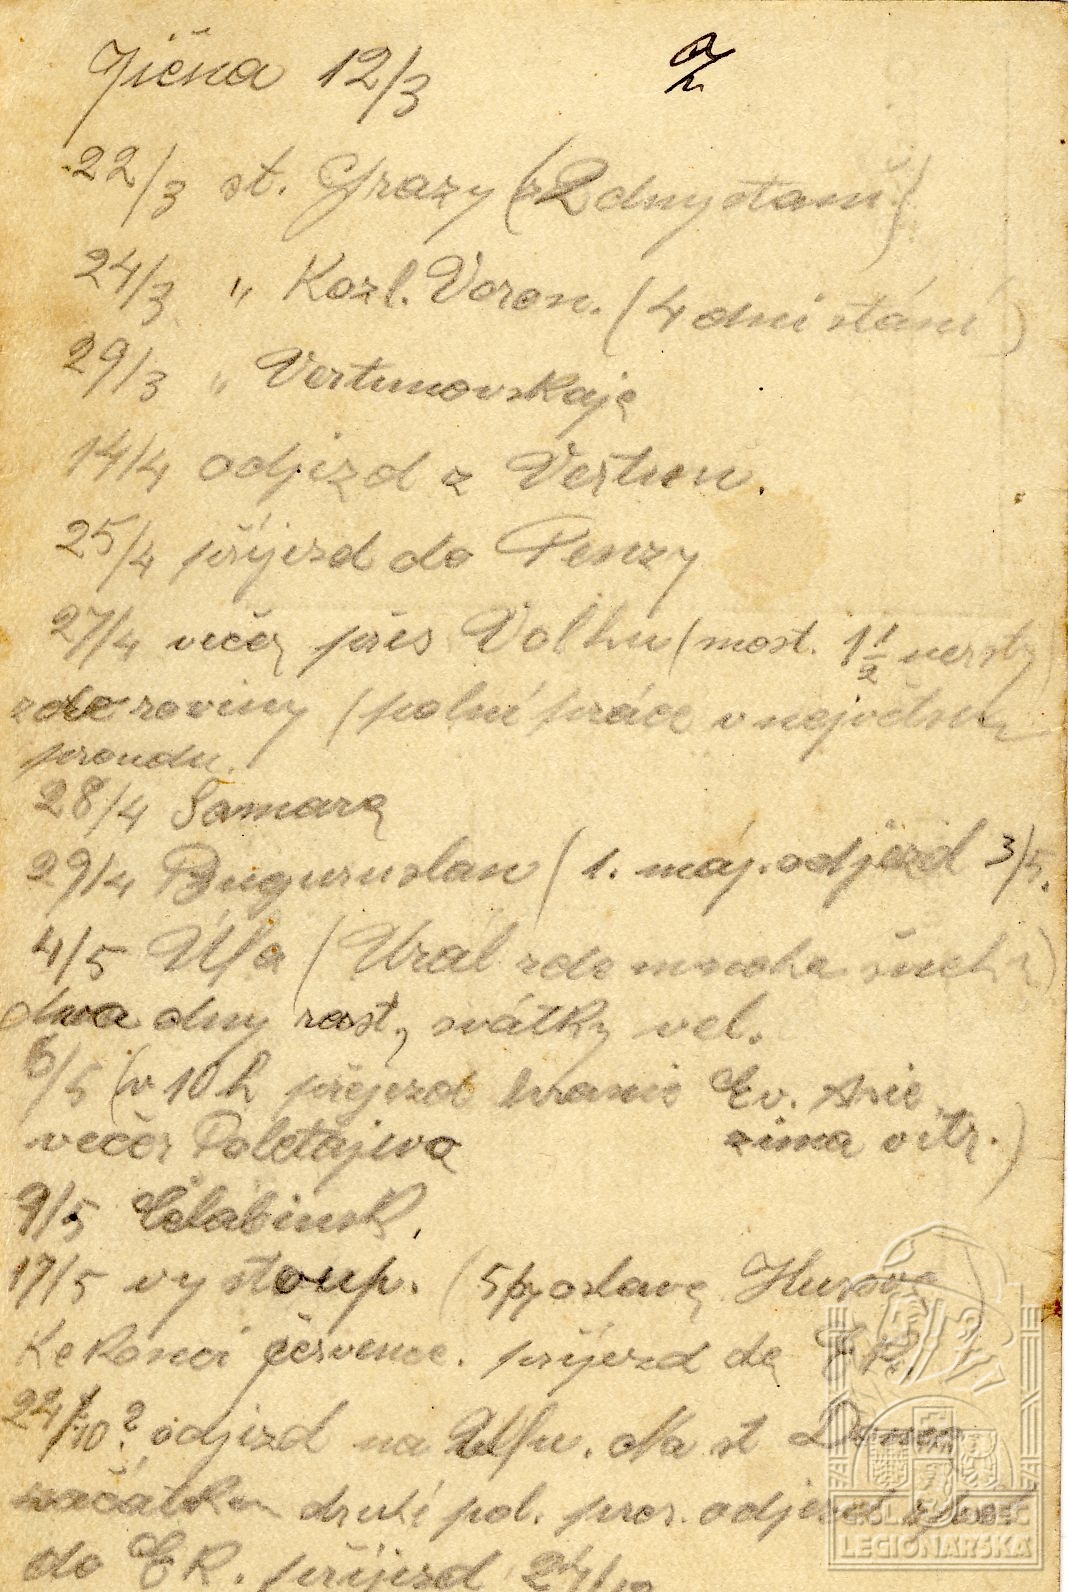 Jična 12/3
22/3 st. Grazy (2 dny stání)
24/3 " Kozl. Voron. (4 dni stání)
29/3 " Vertunovskaja
14/4 odjezd z Vertun.
25/4 příjezd do Penzy
27/4 večer přes Volhu (most. 1 1/2 versty
zde roviny (polní práce v největším
proudu.
28/4 Samara
29/4 Buguruslan (1. máj. odjezd 3/5.
4/5 Ufa (Ural zde mnoho sněhu)
dva dny rast., svátky vel.
6/5 (v 10 h přejezd hranic Ev. Asie
večer Poletajevo zima vítr.)
9/5 Čelabinsk.
17/5 vystoup. (5/7 oslava Husova
Ke konci července. příjezd do
24/10? odjezd na Ufu. Na st
začátku druhé pol. pros. odjezd
do Ek. příjezd 24/12
ČSL. OBEC
LEGIONÁŘSKÁ